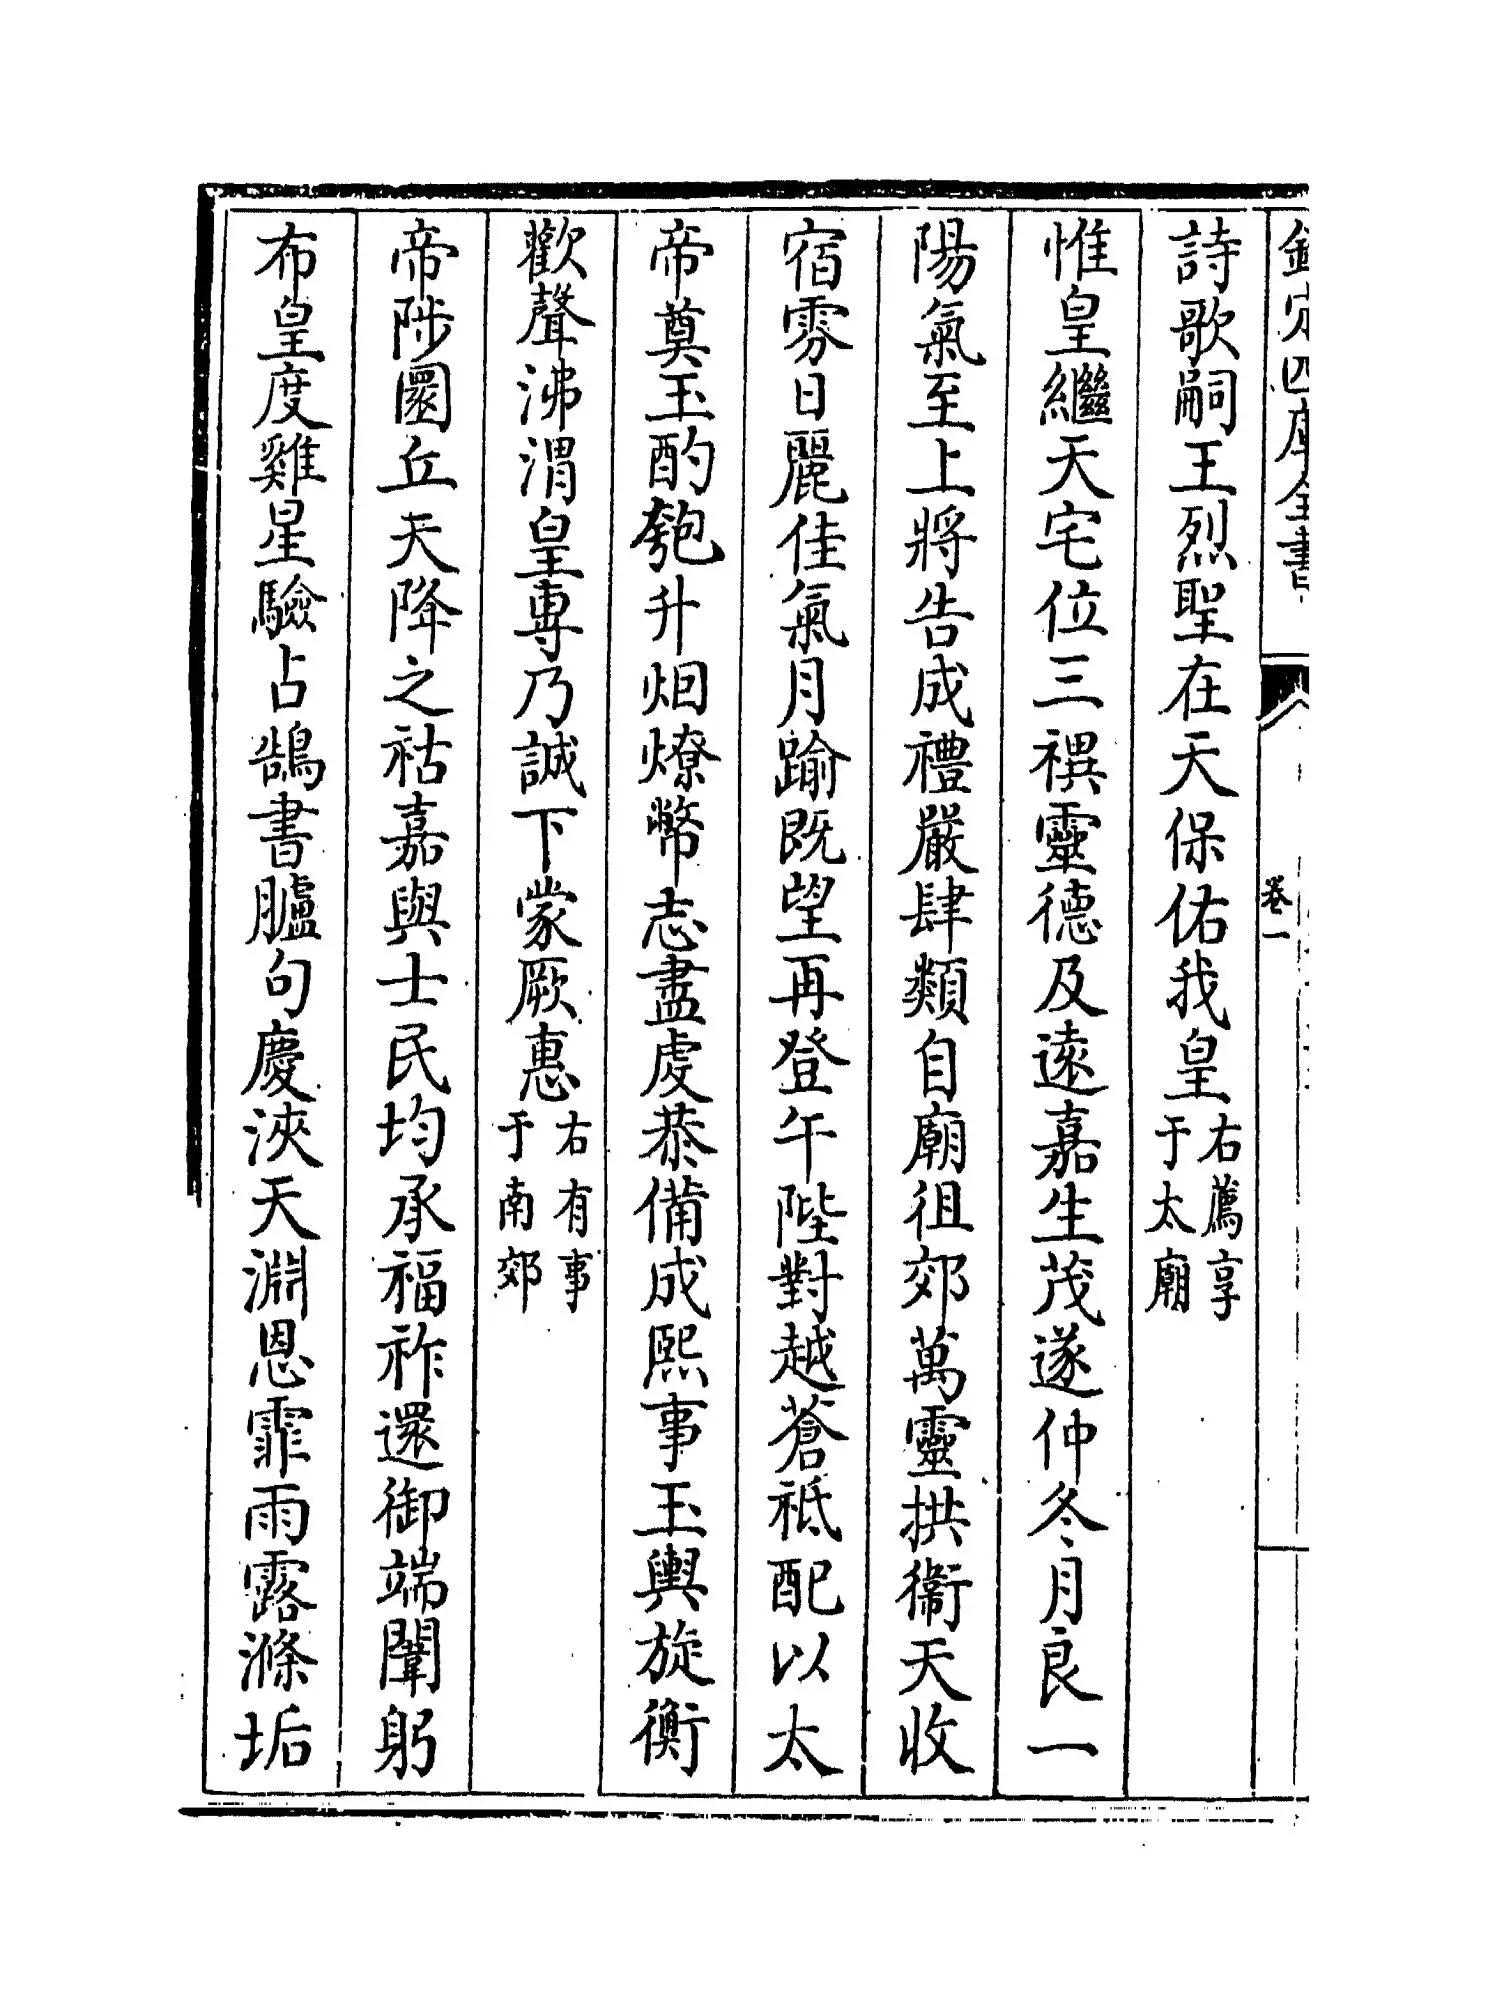 欽定四庫全書
卷一
詩歌嗣王烈聖在天保佑我皇右薦享于太廟
惟皇繼天宅位三禩靈德及遠嘉生茂遂仲冬月良一
陽氣至上將告成禮嚴肆類自廟徂郊萬靈拱衞天收
宿雰日麗佳氣月踰既望再登午陛對越蒼祗配以太
帝奠玉酌匏升烟燎幣志盡虔恭備成熙事玉輿旋衡
歡聲沸渭皇專乃誠下蒙厥惠右有事于南郊
帝陟圜丘天降之祜嘉與士民均承福祚還御端闈躬
布皇度雞星驗占鵠書臚句慶浹天淵恩霏雨露滌垢